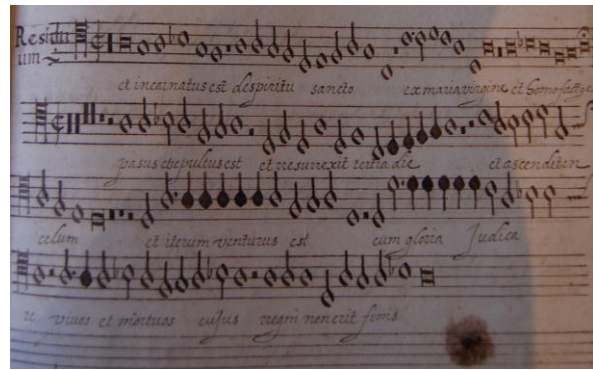 Residu
um
et incarnatus est de spiritu sancto ex maria virgine et homo factus e
pasus et sepultus est et resurrexit tertia die et ascendit in
celum et iterum venturus est cum gloria Judica
re vivos et mortuos cujus regni non erit finis